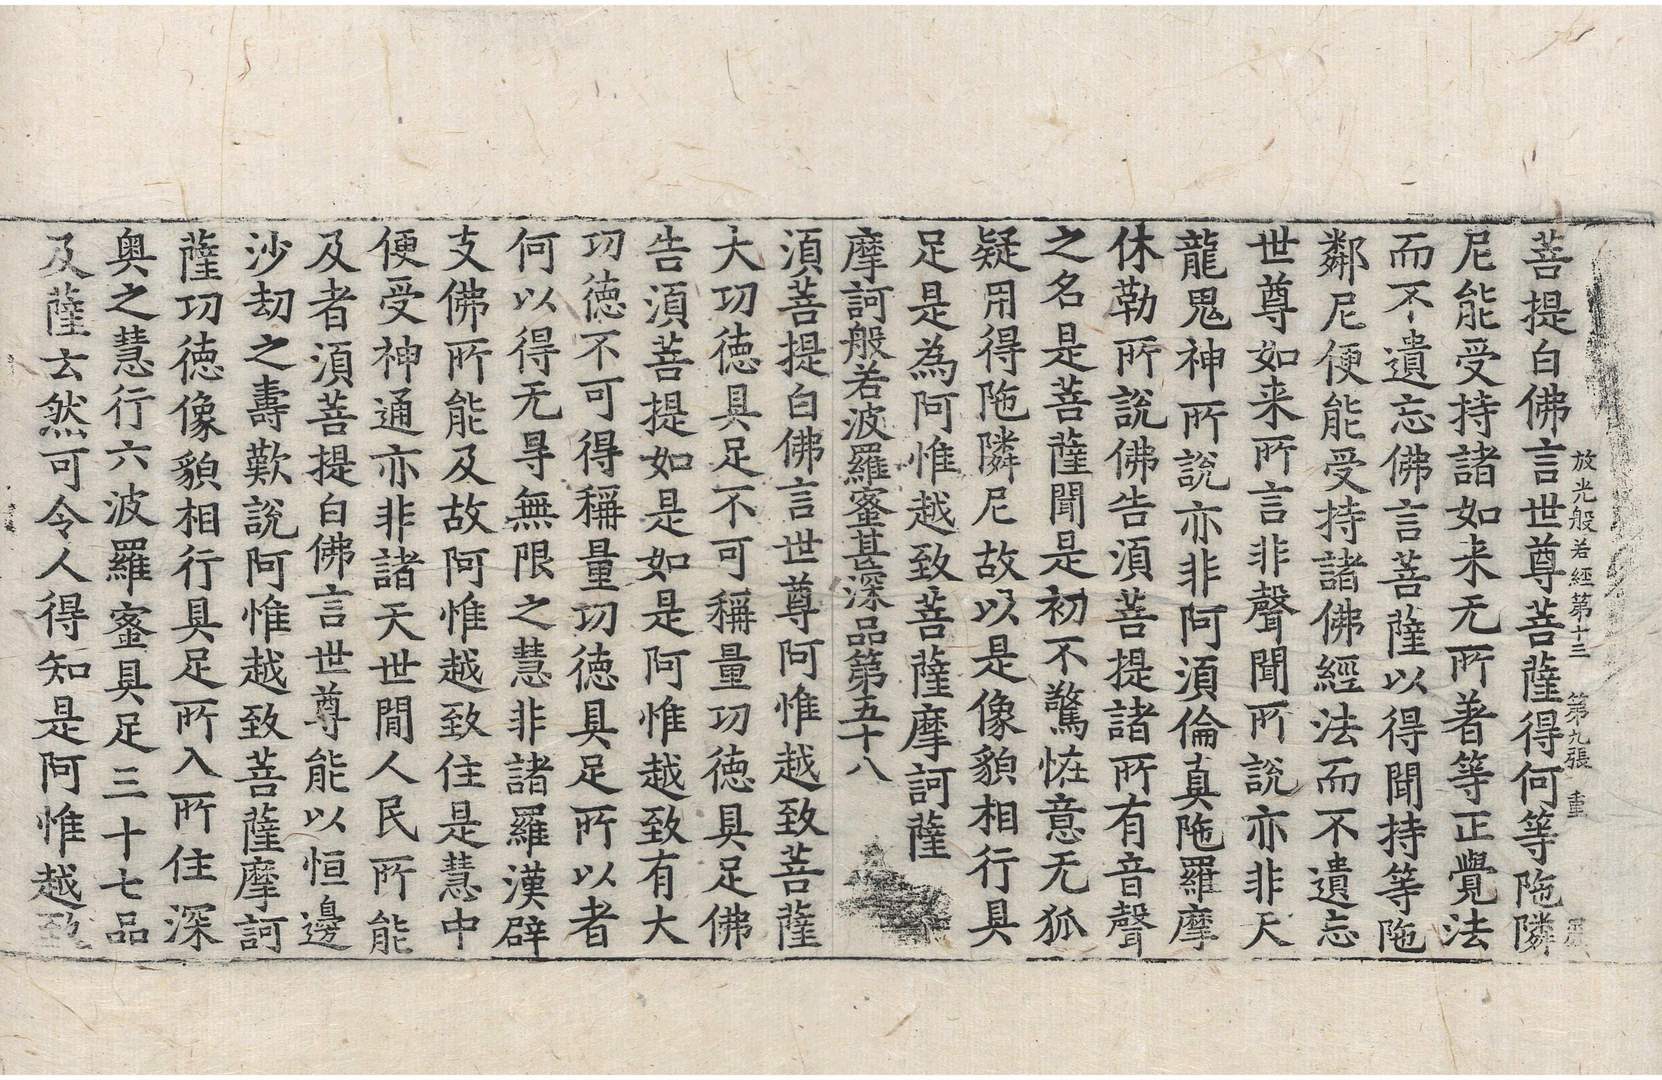 放光般若經第十三 第九張 重
菩提白佛言世尊菩薩得何等陁隣
尼能受持諸如来无所著等正覺法
而不遺忘佛言菩薩以得聞持等陁
鄰尼便能受持諸佛經法而不遺忘
世尊如来所言非聲聞所說亦非天
龍鬼神所說亦非阿須倫真陁羅摩
休勒所說佛告須菩提諸所有音聲
之名是菩薩聞是初不驚恠意无狐
疑用得陁隣尼故以是像貌相行具
足是為阿惟越致菩薩摩訶薩
摩訶般若波羅蜜甚深品第五十八
須菩提白佛言世尊阿惟越致菩薩
大功徳具足不可稱量功徳具足佛
告須菩提如是如是阿惟越致有大
功徳不可得稱量功徳具足所以者
何以得无㝵無限之慧非諸羅漢辟
支佛所能及故阿惟越致住是慧中
便受神通亦非諸天世間人民所能
及者須菩提白佛言世尊能以恒邊
沙劫之壽歎說阿惟越致菩薩摩訶
薩功徳像貌相行具足所入所住深
奥之慧行六波羅蜜具足三十七品
及薩云然可令人得知是阿惟越致